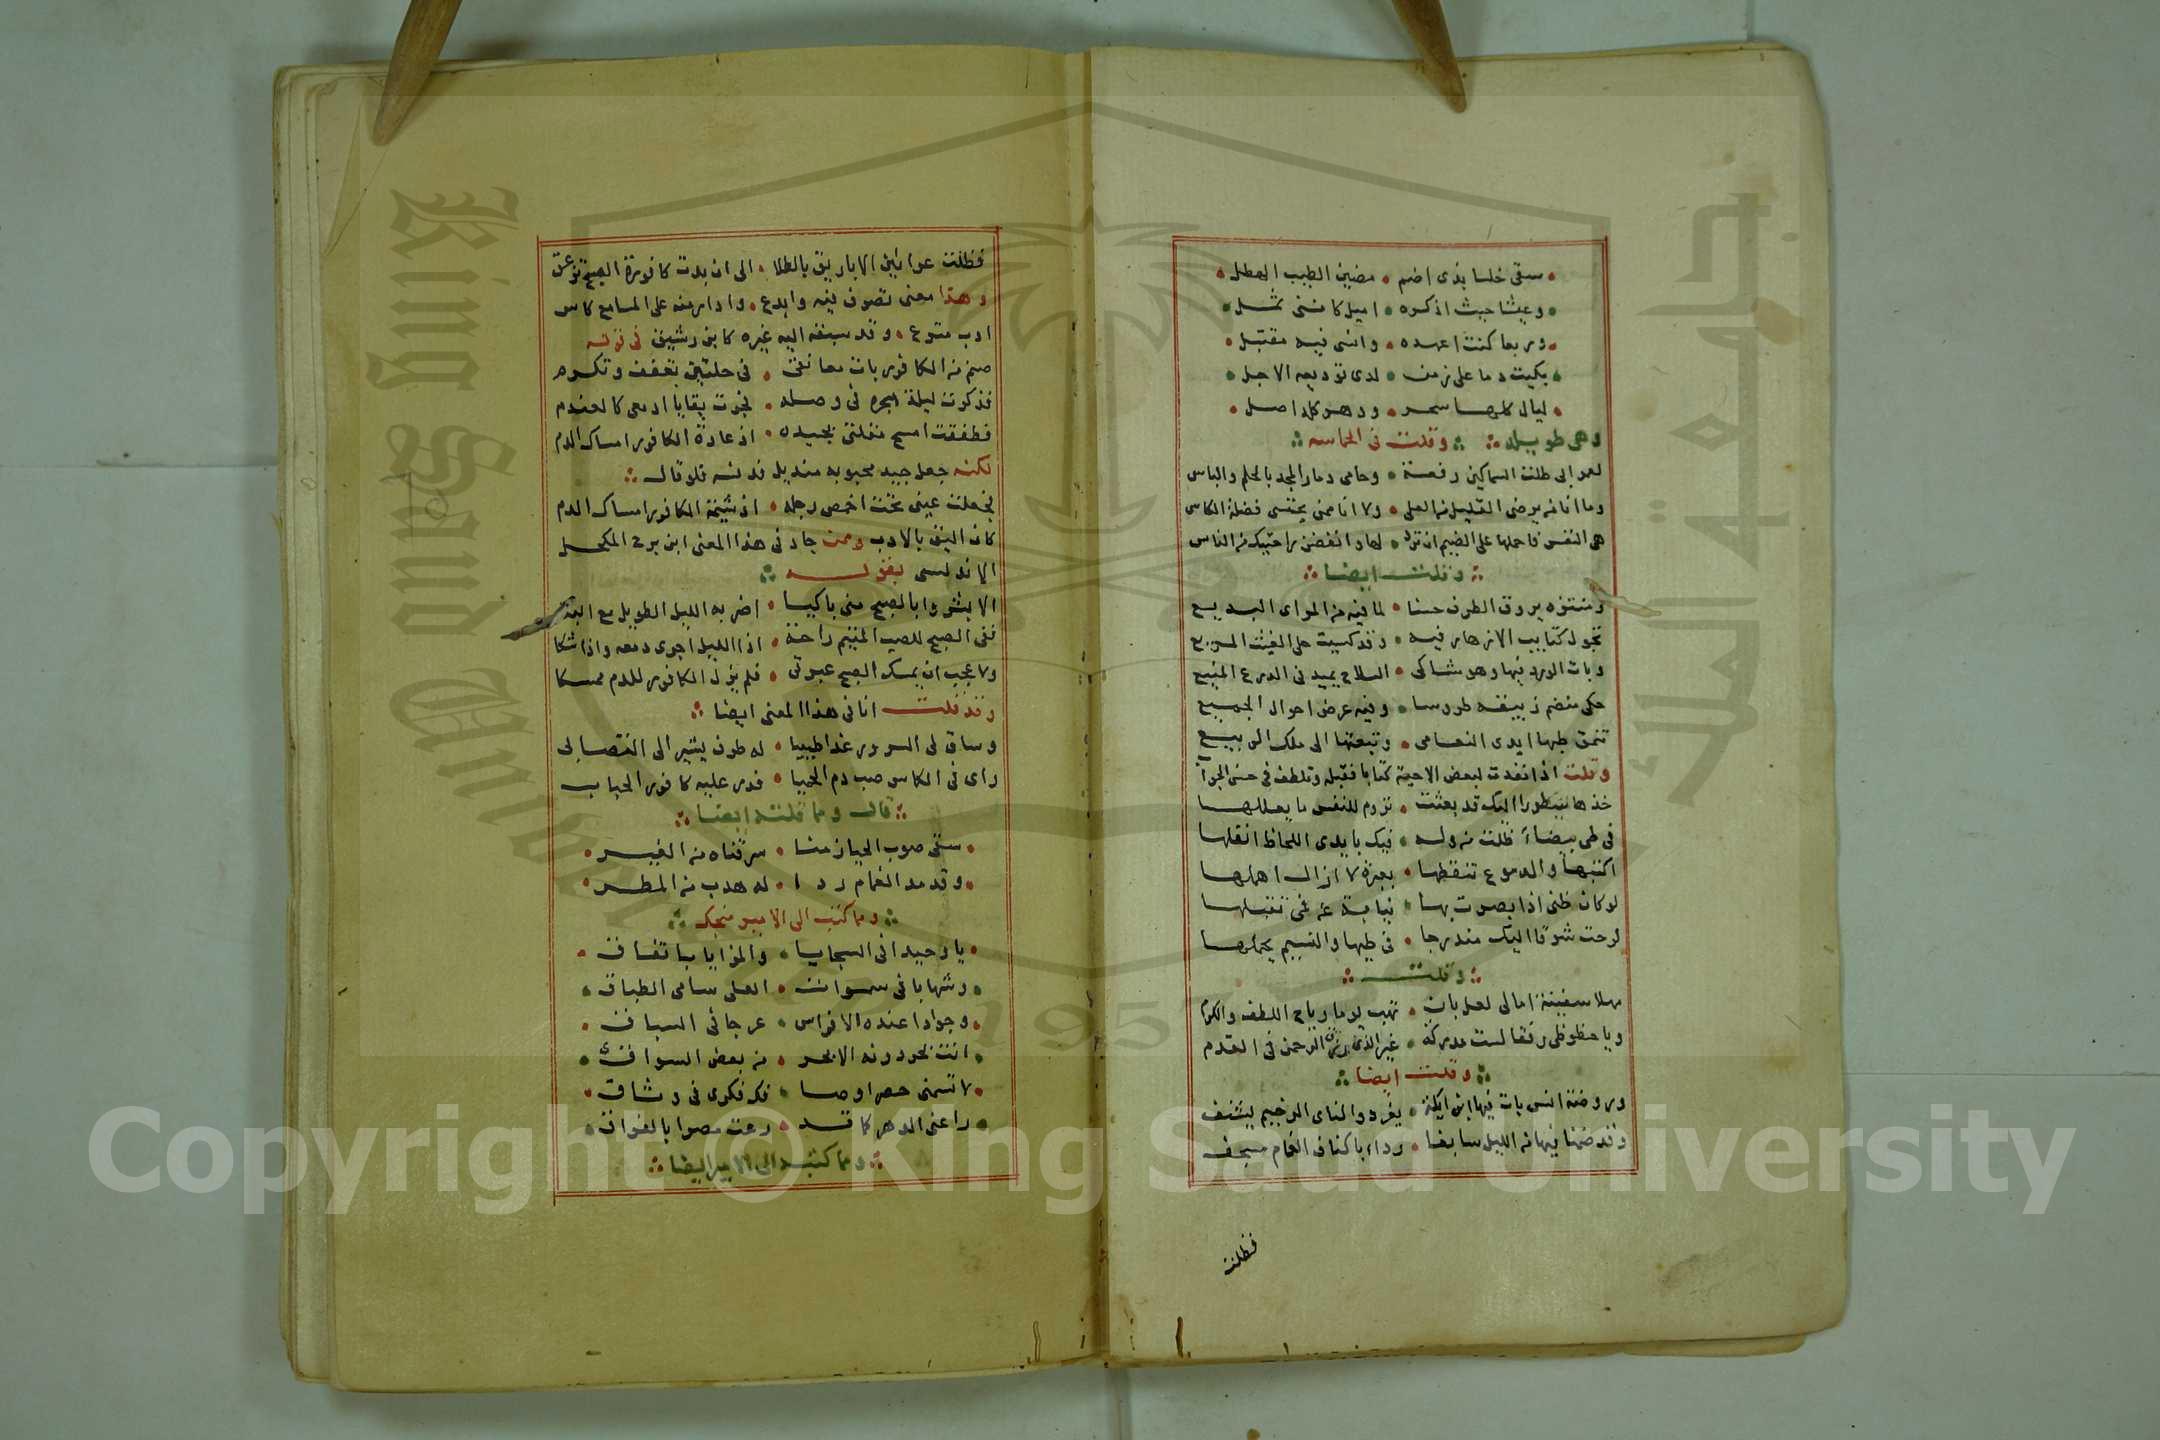 سقى خلسا بذى اضم • مضيئ الطيب الهطل
وعيشا حيث اذكره • اميل كاننى ثمل
وربعا كنت اعهده • وانسى فيه مقتبل
بكيت دما على زمن • لدى توديعه الاجل
ليال كلها سحر • ودهر كله اصل
وهى طويله وقلت فى الحماسه
لعمر ابى طلت السماكين رفعة • وحامى دمار المجد بالحلم والباس
وما انا من يرضى القليل من العلى • ولا انا ممن يحتسى فضلة الكاس
هى النفس فاحملها على الضيم ان ترد • لها وانفض راحتيك من الناس
وقلت ايضا
ومنتزه يروق الطرف حسنا • لما فيه من المراى البديع
تجول كتايب الازهار فيه • وقد كسيت حلى الغيث المريع
وبات الورد فيها وهو شاكى • السلاح يميد فى الدرع المنيع
حكى منضم زنبقه طروسا • وفيه عرض احوال الجميع
تنمق طيها ايدى النعامى • وتبعثها الى ملك الربيع
وقلت اذا نفدت لبعض الاحبة كتابا فقبله وتلطف فى حسن الجواب
خذها سطورا اليك قد بعثت • تروم للنفس ما يعللها
فى طى بيضاء ظلت من وله • فيك بايدى اللحاظ انقلها
اكتبها والدموع تنقطها • بعبرة لا ازال اهملها
لو كان ظنى اذا بصرت بها • نيابة عن فمى تقبلها
لرحت شوقا اليك مندرجا • فى طيها والنسيم يحملها
وقلت
مهلا سفينة امالى لعل بان • تهب يوما رياح اللطف والكرم
ويا حظوظى رفقا لست مدركة • غير الذى الرحمن فى القدم
وقلت ايضا
وروضة انس بات فيها ابن ايكة • يغرد والناى الرخيم يشنف
وقد ضمنا فيها من الليل سابغا • رداء باكناف الغمام مسجف
فظلت
فظلت عرانين الاباريق بالطلا • الى ان بدت كافورة الصبح ترعف
وهذا معنى تصرف فيه وابدع • وادار منه على المسامع كاس
ادب مترع • وقد سبقه اليه غيره كابن رشيق فى قوله
صنم من الكافور بات معانقى • فى حلتين تعفف وتكرم
فذكرت ليلة هجره فى وصله • فجرت بقايا ادمعى كالعندم
فطفقت امسح مقلتى بجيده • اذ عادة الكافور امساك الدم
لكنه جعل جيد محبوبه منديل فلو قال
فجعلت عينى تحت اخمص رجله • اذ شيمة الكافور امساك الدم
كان اليق بالادب وممن جاد فى هذا المعنى ابن برح المكحل
الاندلسى بقوله
الا بشروا بالصبح منى باكيا • اضر به الليل الطويل مع البكا
ففى الصبح للصب المتيم راحة • اذا الليل اجرى دمعه واذا شكا
ولا عجب ان يمسك الصبح عبرتى • فلم يزل الكافور للدم ممسكا
وقد قلت انا فى هذا المعنى ايضا
وساق لى السرور غدا طبيبا • له طرف يشير الى التصابى
راى فى الكاس صب دم الحميا • فدر عليه كافور الحباب
قال ومما قلته ايضا
سقى صوب الحيا زمنا • سرقناه من الغير
وقد مد الغمام ردا • له هدب من المطر
ومما كتب الى الامير منجك
يا وحيدا فى السجايا • والمزايا باتفاق
وشهابا فى سموات • العلى سامى الطباق
وجوادا عنده الافراس • عرجائى السباق
انت بحر دونه الابحر • من بعض السواقى
لا تسمنى حصر اوصا • فك فكرى فى وثاق
راعنى الدهر كا قد • رعت مصرا بالفراق
ومما كتبه الى الامير ايضا
King Saud University
1957
Copyright © King Saud University